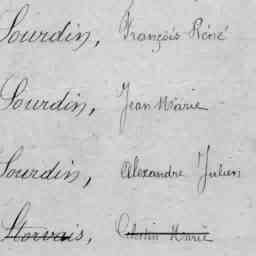 Sourdin, François Réné
Sourdin, Jean Marie
Sourdin, Alexandre Julien
Storvais, Célestin Marie